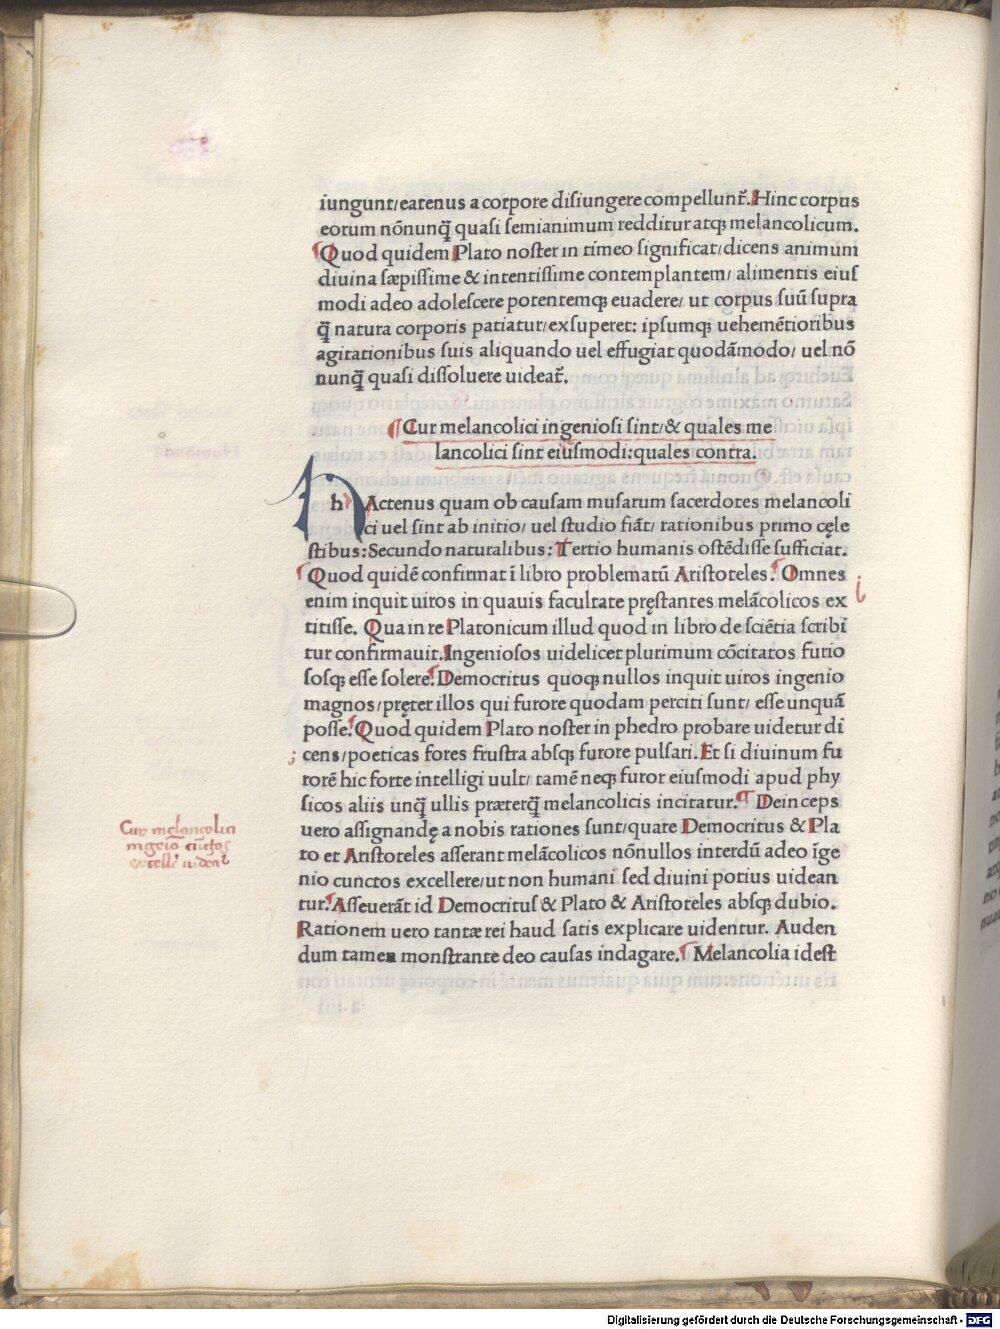 iungunt/eatenus a corpore disiungere compellunt᷑. Hinc corpus
eorum nōnunq̄ quasi semianimum redditur atq; melancolicum.
Quod quidem Plato noster in timeo significat/dicens animum
diuina sæpissime & intentissime contemplantem/ alimentis eius
modi adeo adolescere potentemq; euadere/ ut corpus suū supra
q̄ natura corporis patiatur/exsuperet: ipsumq; uehemētioribus
agitationibus suis aliquando uel effugiat quodāmodo/ uel nō
nunq̄ quasi dissoluere uideat᷑.
Cur melancolici ingeniosi sint/& quales me
lancolici sint eiusmodi:quales contra.
hActenus quam ob causam musarum sacerdotes melancoli
ci uel sint ab initio/ uel studio fiāt/ rationibus primo cęle
stibus:Secundo naturalibus: Tertio humanis ostēdisse sufficiat.
Quod quidē confirmat ī libro problematū Aristoteles. Omnes
enim inquit uiros in quauis facultate pręstantes melācolicos ex
titisse. Qua in re Platonicum illud quod in libro de sciētia scribi
tur confirmauit. Ingeniosos uidelicet plurimum cōcitatos furio
sosq; esse solere. Democritus quoq; nullos inquit uiros ingenio
magnos/pręter illos qui furore quodam perciti sunt/ esse unquā
posse. Quod quidem Plato noster in phedro probare uidetur di
cens/poeticas fores frustra absq; furore pulsari. Et si diuinum fu
rorē hic forte intelligi uult/ tamē neq; furor eiusmodi apud phy
sicos aliis unq̄ ullis præterq̄ melancolicis incitatur. Deinceps
uero assignandę a nobis rationes sunt/quare Democritus & Pla
to et Aristoteles asserant melācolicos nōnullos interdū adeo īge
nio cunctos excellere/ut non humani sed diuini potius uidean
tur. Asseuerāt id Democritus & Plato & Aristoteles absq; dubio.
Rationem uero tantæ rei haud satis explicare uidentur. Auden
dum tamen monstrante deo causas indagare. Melancolia idest
Cur melancolici
ingeio cūctos
excellē uideāt᷑
Digitalisierung gefördert durch die Deutsche Forschungsgemeinschaft - DFG